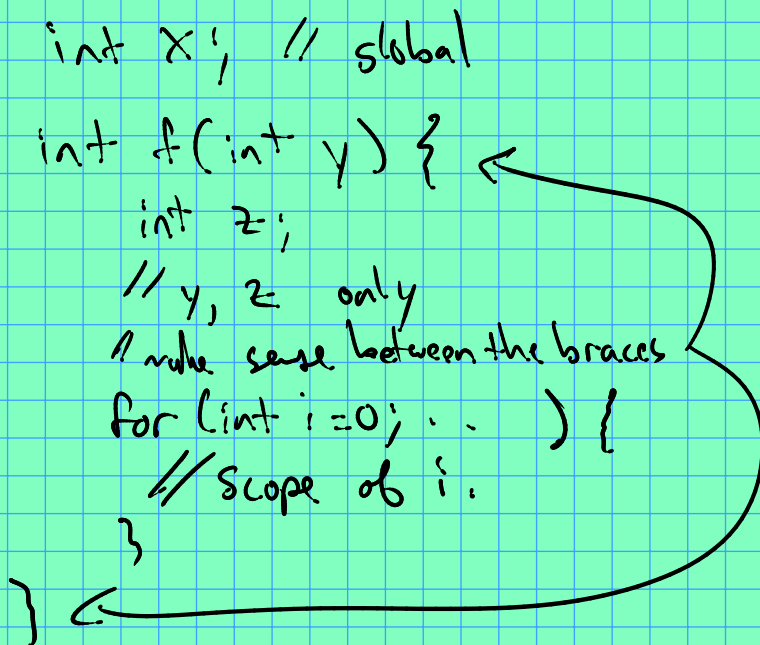 int x; // global
int f(int y) {
int z;
// y, z only
// make sense between the braces
for (int i=0; .. ) {
// scope of i.
}
}